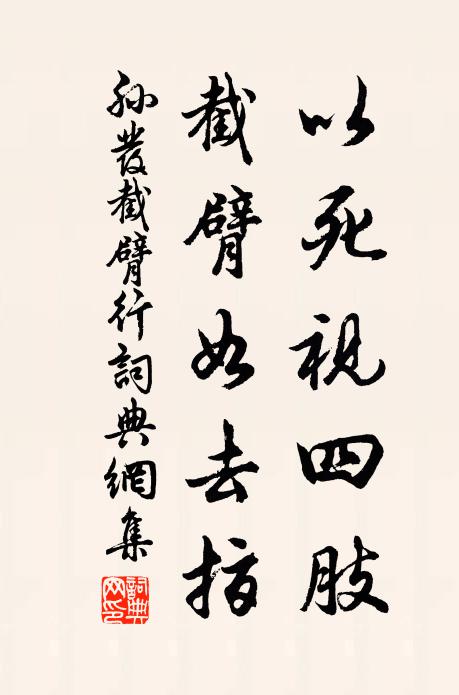 以死視四肢
截臂如去指
孫發截臂行詞典網集
詞典网印